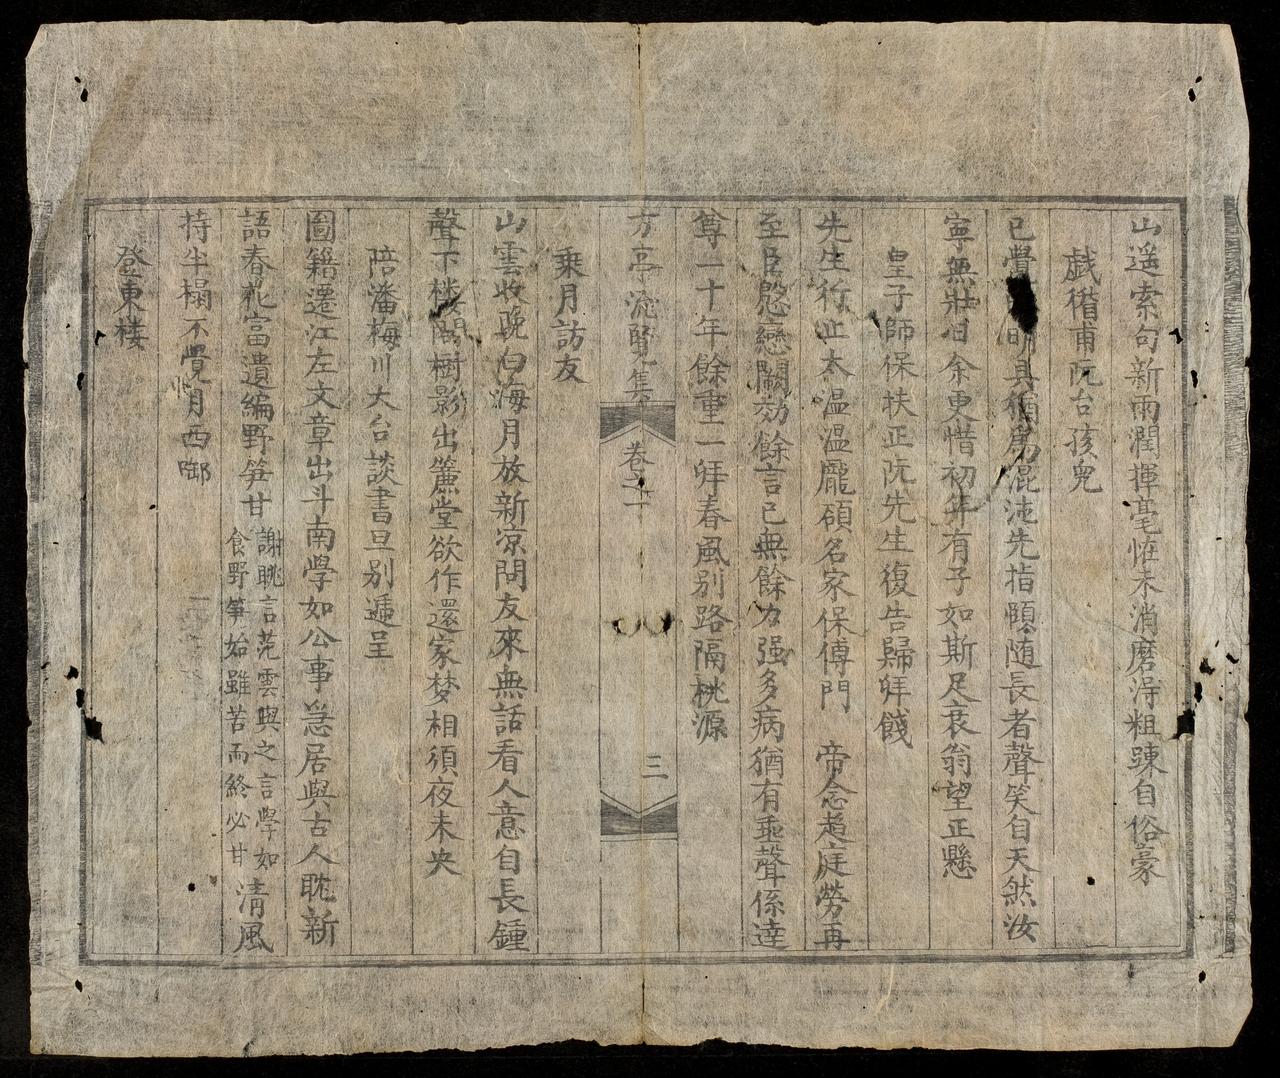 山遥索句新雨潤揮毫恠未消磨淂粗踈自俗豪
戯楷甫阮台孩兒
已覺明具循爲混沌先指顋随長者聲笑自天然汝
寧無壯日余更惜初年有子如斯足衰翁望正懸
皇子師保扶正阮先生復告歸拜餞
先生行止太温温龐碩名家保傅門 帝念趋庭勞再
至臣慇戀闕効餘言已無餘力强多病猶有乖聲係達
尊一十年餘重一拜春風别路隔桃源
方亭流覽集 卷之一 三
乗月訪友
山雲收晚白海月放新凉問友來無話看人意自長鍾
聲下楼閣樹影出簾堂欲作還家梦相須夜未央
陪潘梅川大台談書旦别逓呈
圖籍遷江左文章出斗南学如公事急居與古人耽新
語春花富遺編野笋甘謝眺言范雲與之言學如食野笋始雖苦而終必甘清風
持半榻不覺月西啣
登東楼